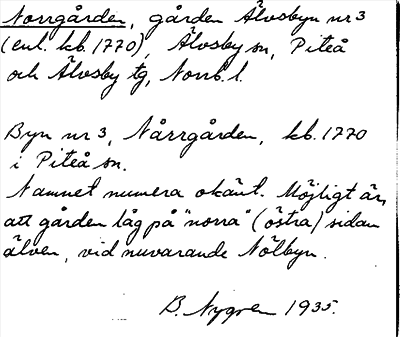 Norrgården, gården Älvsbyn nr 3
(enl. kb. 1770), Älvsby sn, Piteå
och Älvsby tg, Norrb. l.
Byn nr 3, Nårrgården, kb. 1770
i Piteå sn.
Namnet numera okänt. Möjligt är,
att gården låg på "norra" (östra) sidan
älven, vid nuvarande Nölbyn.
B. Nygren 1935.